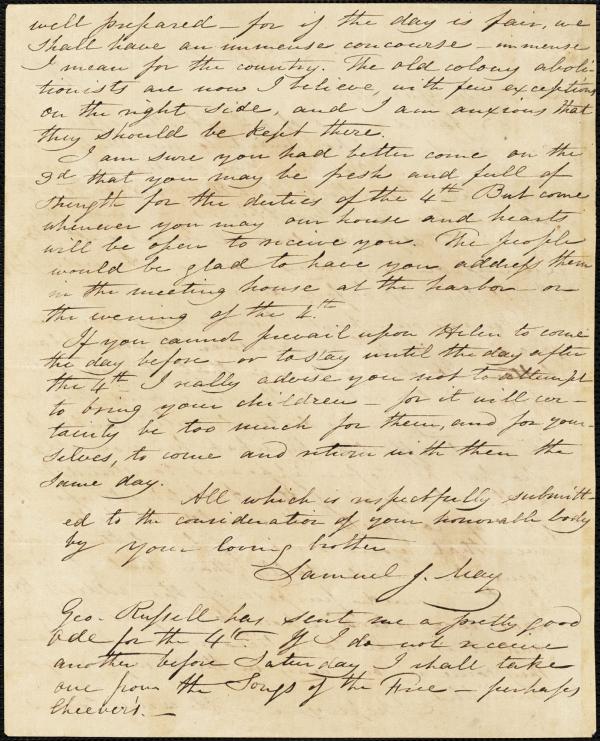 well prepared – for if the day is fair, we
shall have an immense concourse – immense
I mean for the country. The old colony aboli-
tionists are now I believe, with few exceptions
on the right side, and I am anxious that
they should be kept there.
I am sure you had better come on the
3d that you may be fresh and full of
strength for the duties of the 4th. But come
whenever you may our house and hearts
will be open to receive you. The people
would be glad to have you address them
in the meeting house at the harbor on
the evening of the 4th.
If you cannot prevail upon Helen to come
the day before – or to stay until the day after
the 4th I really advise you not to attempt
to bring your children – for it will cer-
tainly be too much for them, and for your-
selves, to come and return with them the
same day.
All which is respectfully submitt-
ed to the consideration of your honorable body
by your loving brother
Samuel J. May
Geo. Russell has sent me a pretty good
Ode for the 4th. If I do not receive
another before Saturday I shall take
one from the Songs of the Free – perhaps
Cheever's. –